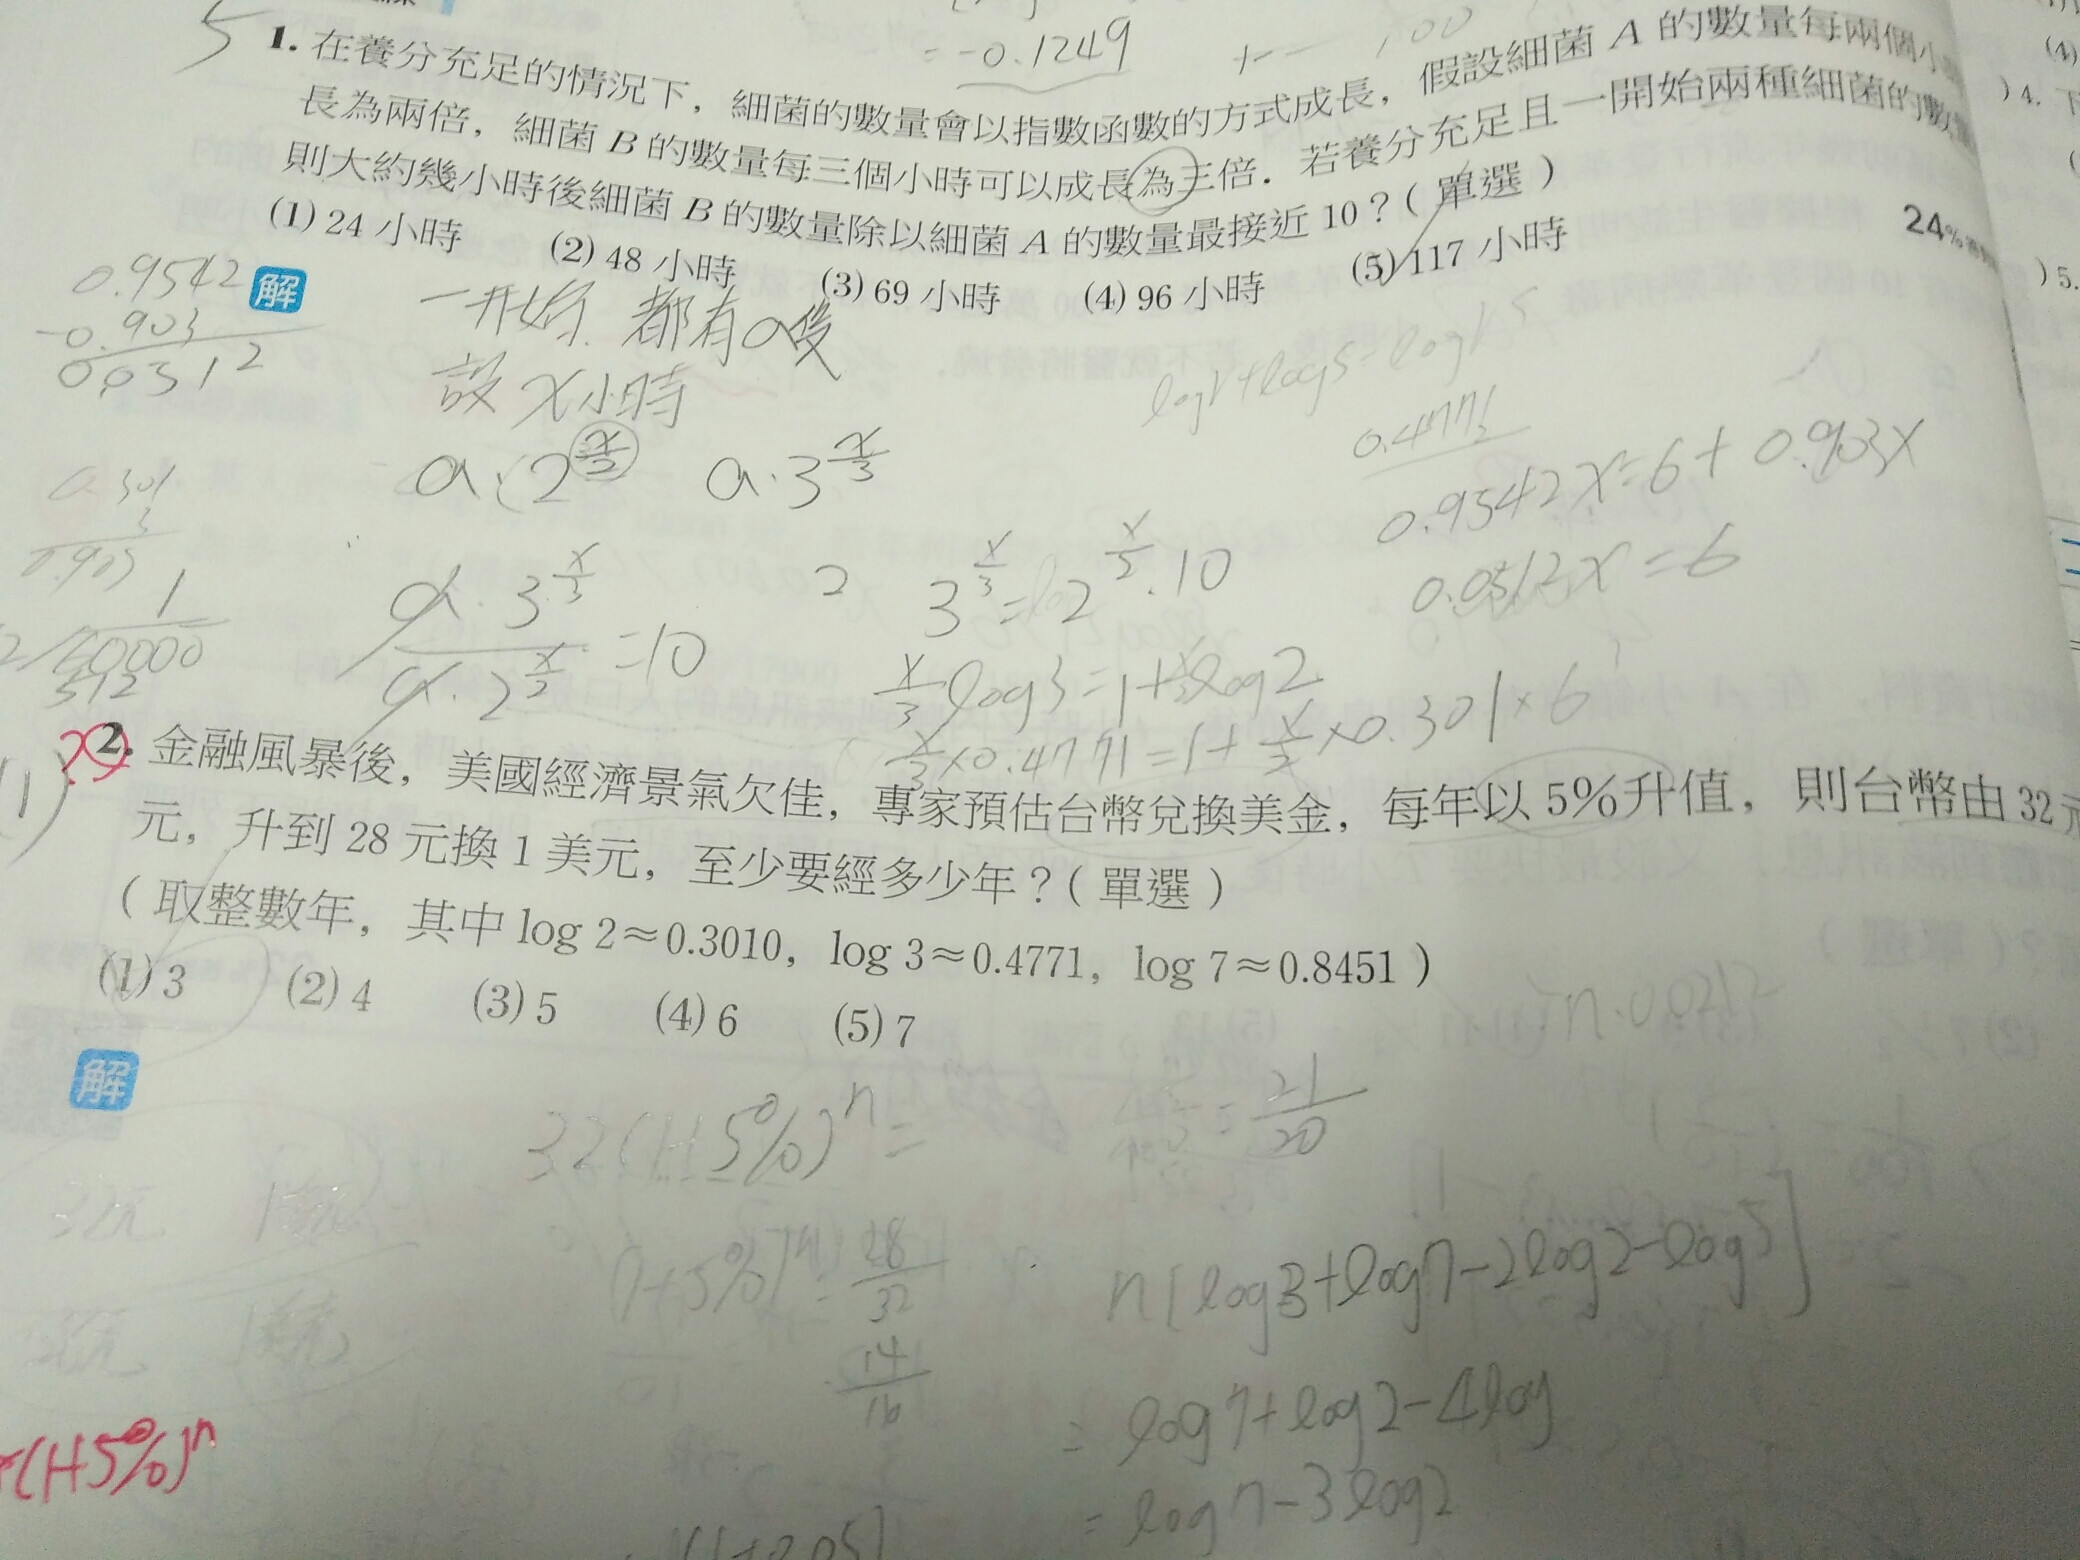 = -0.1249
5
1. 在養分充足的情況下，細菌的數量會以指數函數的方式成長，假設細菌 A 的數量每兩個小
長為兩倍，細菌 B 的數量每三個小時可以成長為三倍．若養分充足且一開始兩種細菌的數
則大約幾小時後細菌 B 的數量除以細菌 A 的數量最接近 10？（單選）
(1) 24 小時 (2) 48 小時 (3) 69 小時 (4) 96 小時 (5) 117 小時
24%
)4.
)5.
0.9542
-0.903
0.0512
解
一開始 都有a隻
設 x小時
a·(2^{x/2} a·3^{x/3}
0.301
3
0.903
0.4771
0.9542x=6+0.903x
0.0512x=6
a·3^{x/3}/a·2^{x/2}=10
3^{x/3}=2^{x/2}·10
x/3 log3=1+x/2 log2
x/3×0.4771=1+x/2×0.301×6
1
60000
512
2. 金融風暴後，美國經濟景氣欠佳，專家預估台幣兌換美金，每年以 5%升值，則台幣由 32 元
元，升到 28 元換 1 美元，至少要經多少年？（單選）
（取整數年，其中 log 2≈0.3010，log 3≈0.4771，log 7≈0.8451）
(1) 3 (2) 4 (3) 5 (4) 6 (5) 7
n·0.0212
解
32(1+5%)^n=
=21/20
32元
(1+5%)^n=28/32
14/16
n[log3+log7-2log2-log5]
= log7+log2-4log
= log7-3log2
(1+5%)^n